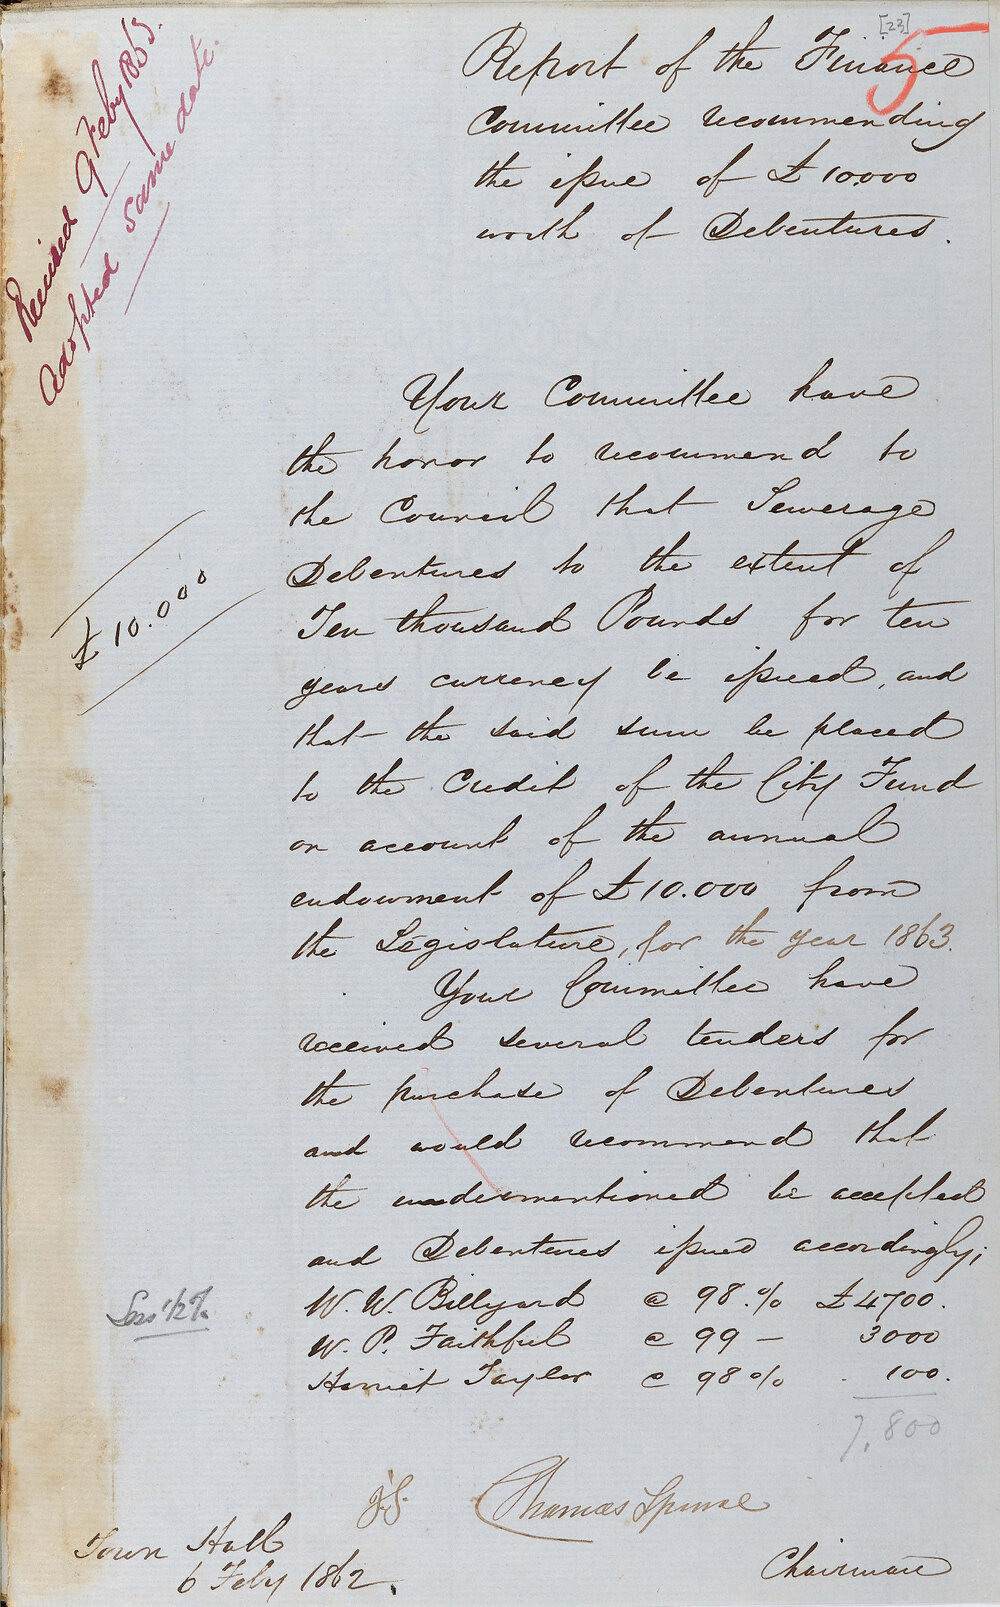 [23]
5
Received 9 Feby 1863.
Adopted same date.
Report of the Finance
Committee recommending
the issue of £10,000
worth of Debentures.
Your Committee have
the honor to recommend to
the Council that Sewerage
Debentures to the extent of
£10.000
Ten thousand Pounds for ten
years currency be issued, and
that the said sum be placed
to the Credit of the City Fund
on account of the annual
endowment of £10.000 from
the Legislature, for the year 1863.
Your Committee have
received several tenders for
the purchase of Debentures
and would recommend that
the undermentioned be accepted
and Debentures issued accordingly;
Less 1/2 %
W. W. Billyard @ 98.% £4700.
W. P. Faithful @ 99 — 3000
Harriet Taylor @ 98% 100.
7,800
Thomas Spence
Chairman
Town Hall
6 Feby 1862.